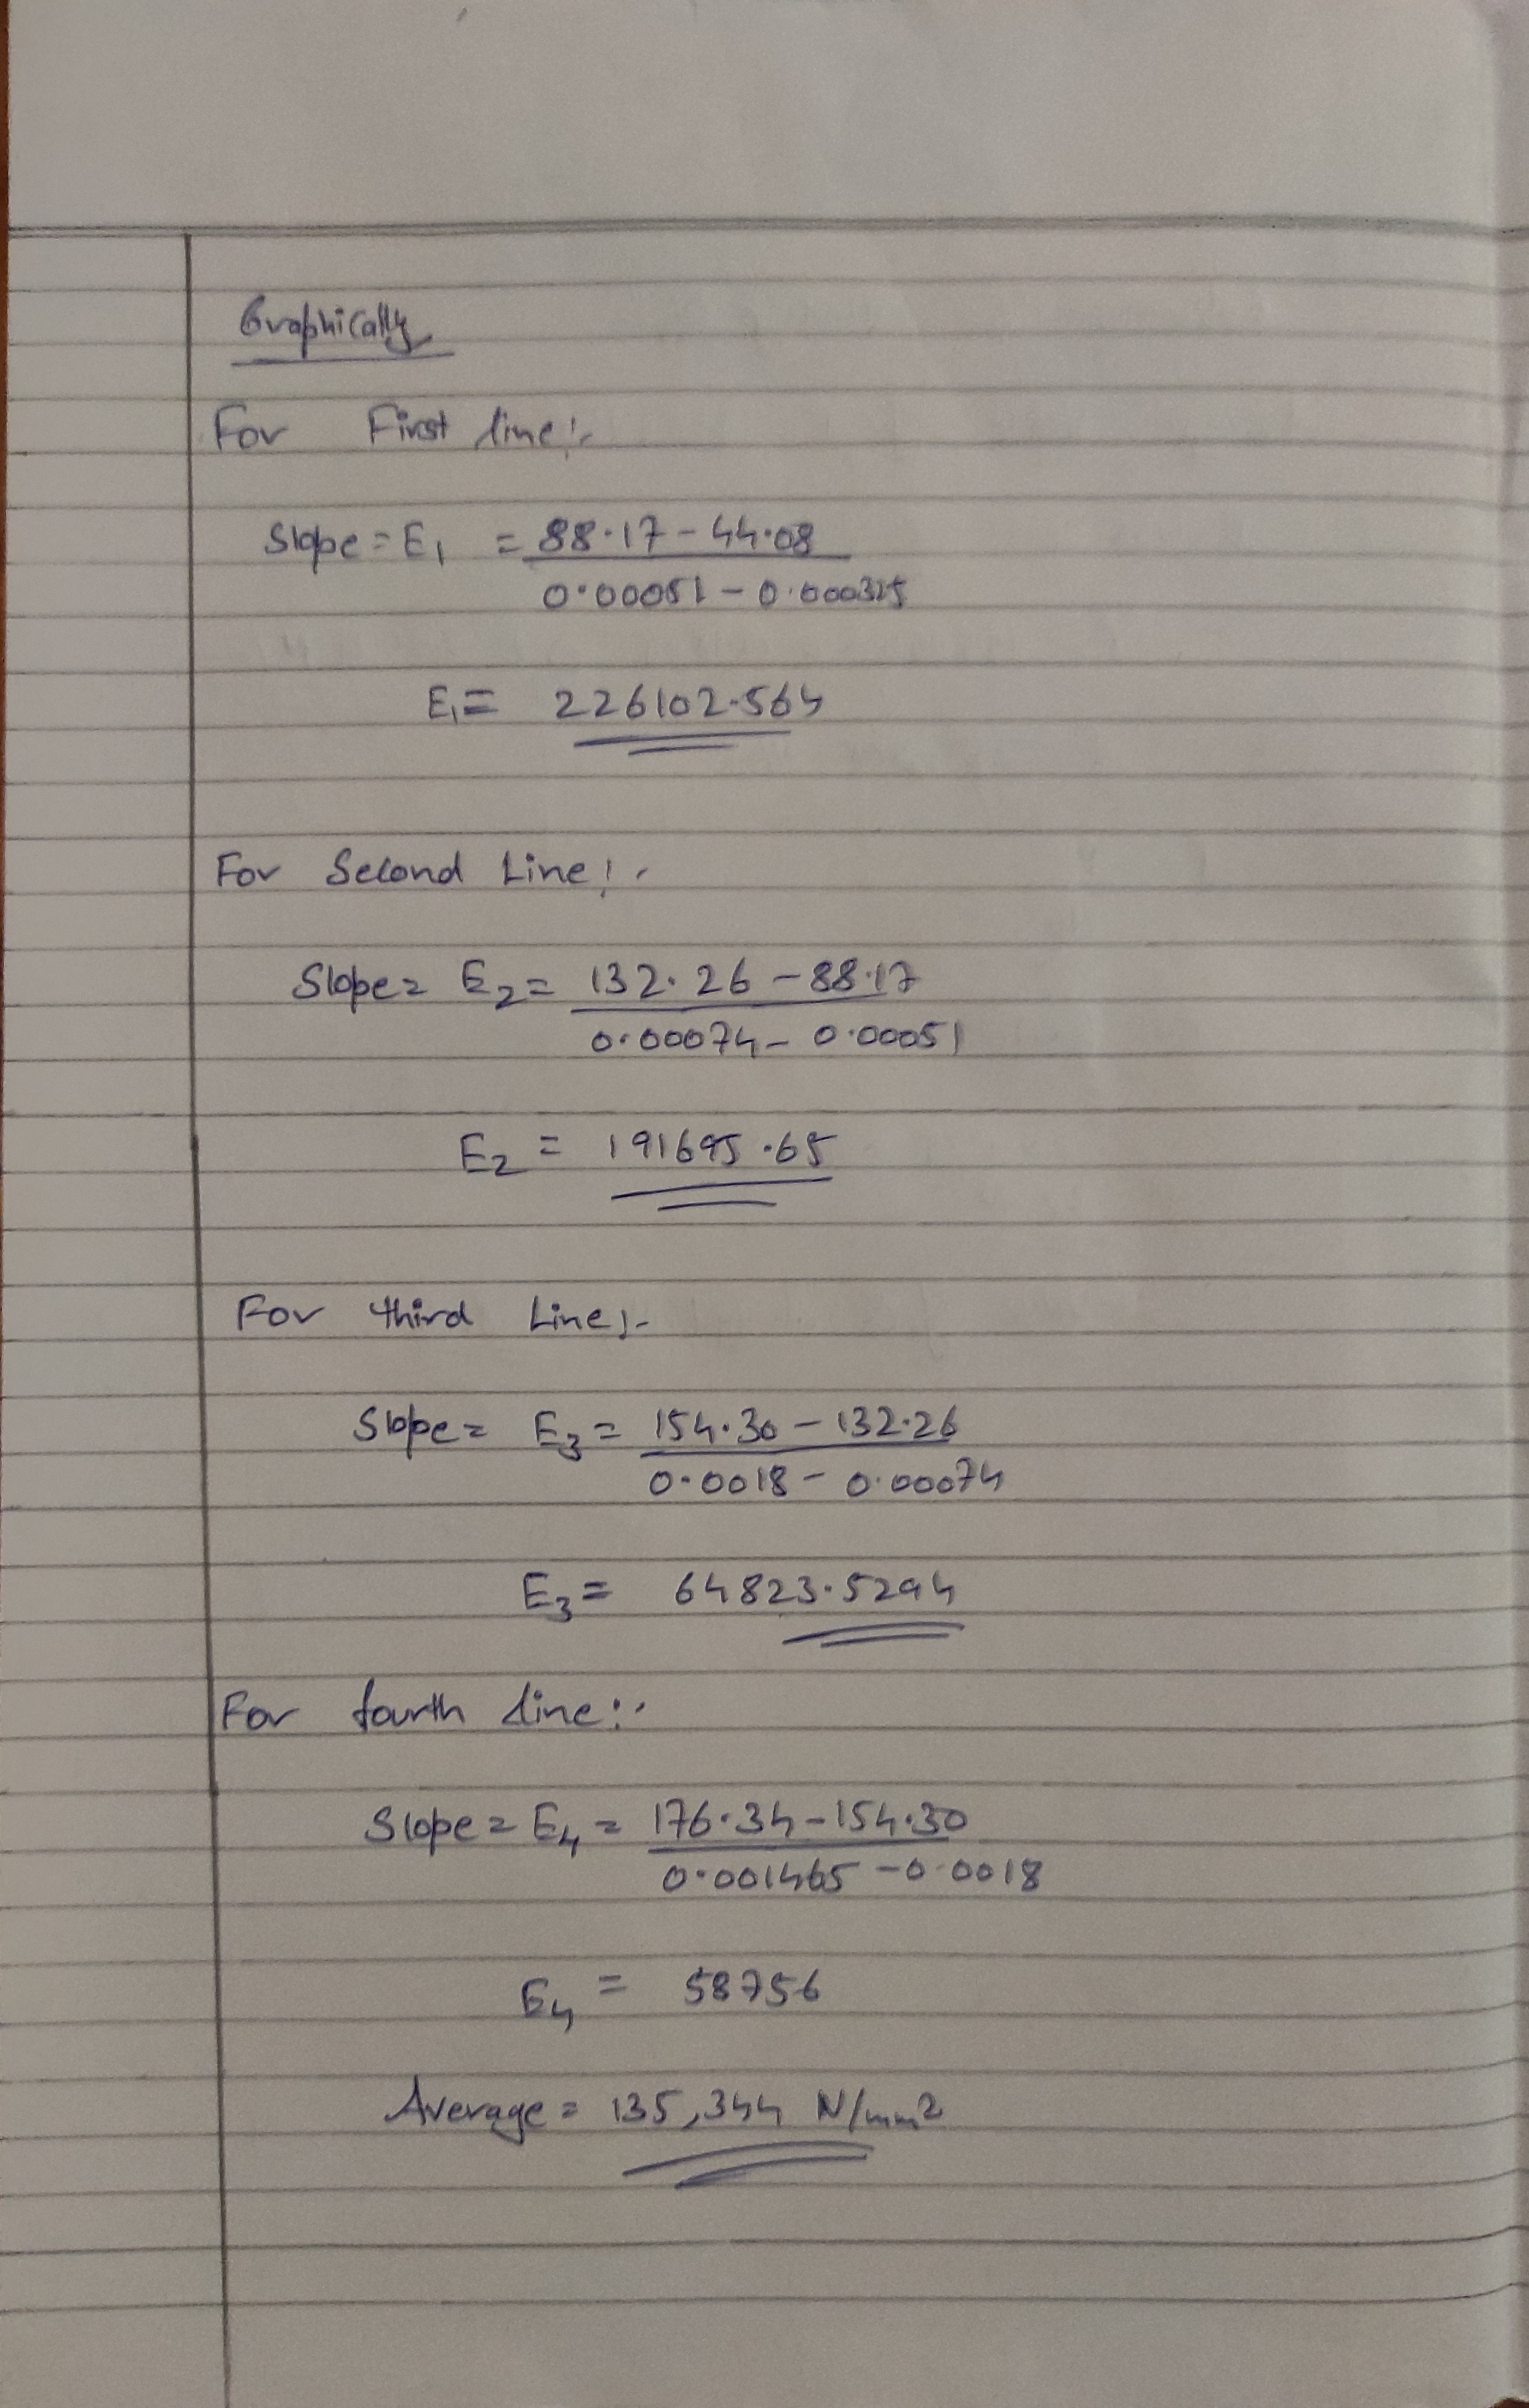 Graphically
For First line:-
Slope = E1 = 88.17 - 44.08
0.00051 - 0.000315
E1 = 226102.564
For Second Line:-
Slope = E2 = 132.26 - 88.17
0.00074 - 0.00051
E2 = 191695.65
For third Line:-
Slope = E3 = 154.30 - 132.26
0.0018 - 0.00074
E3 = 64823.5294
For fourth line:-
Slope = E4 = 176.34 - 154.30
0.001465 - 0.0018
E4 = 58756
Average = 135,344 N/mm2